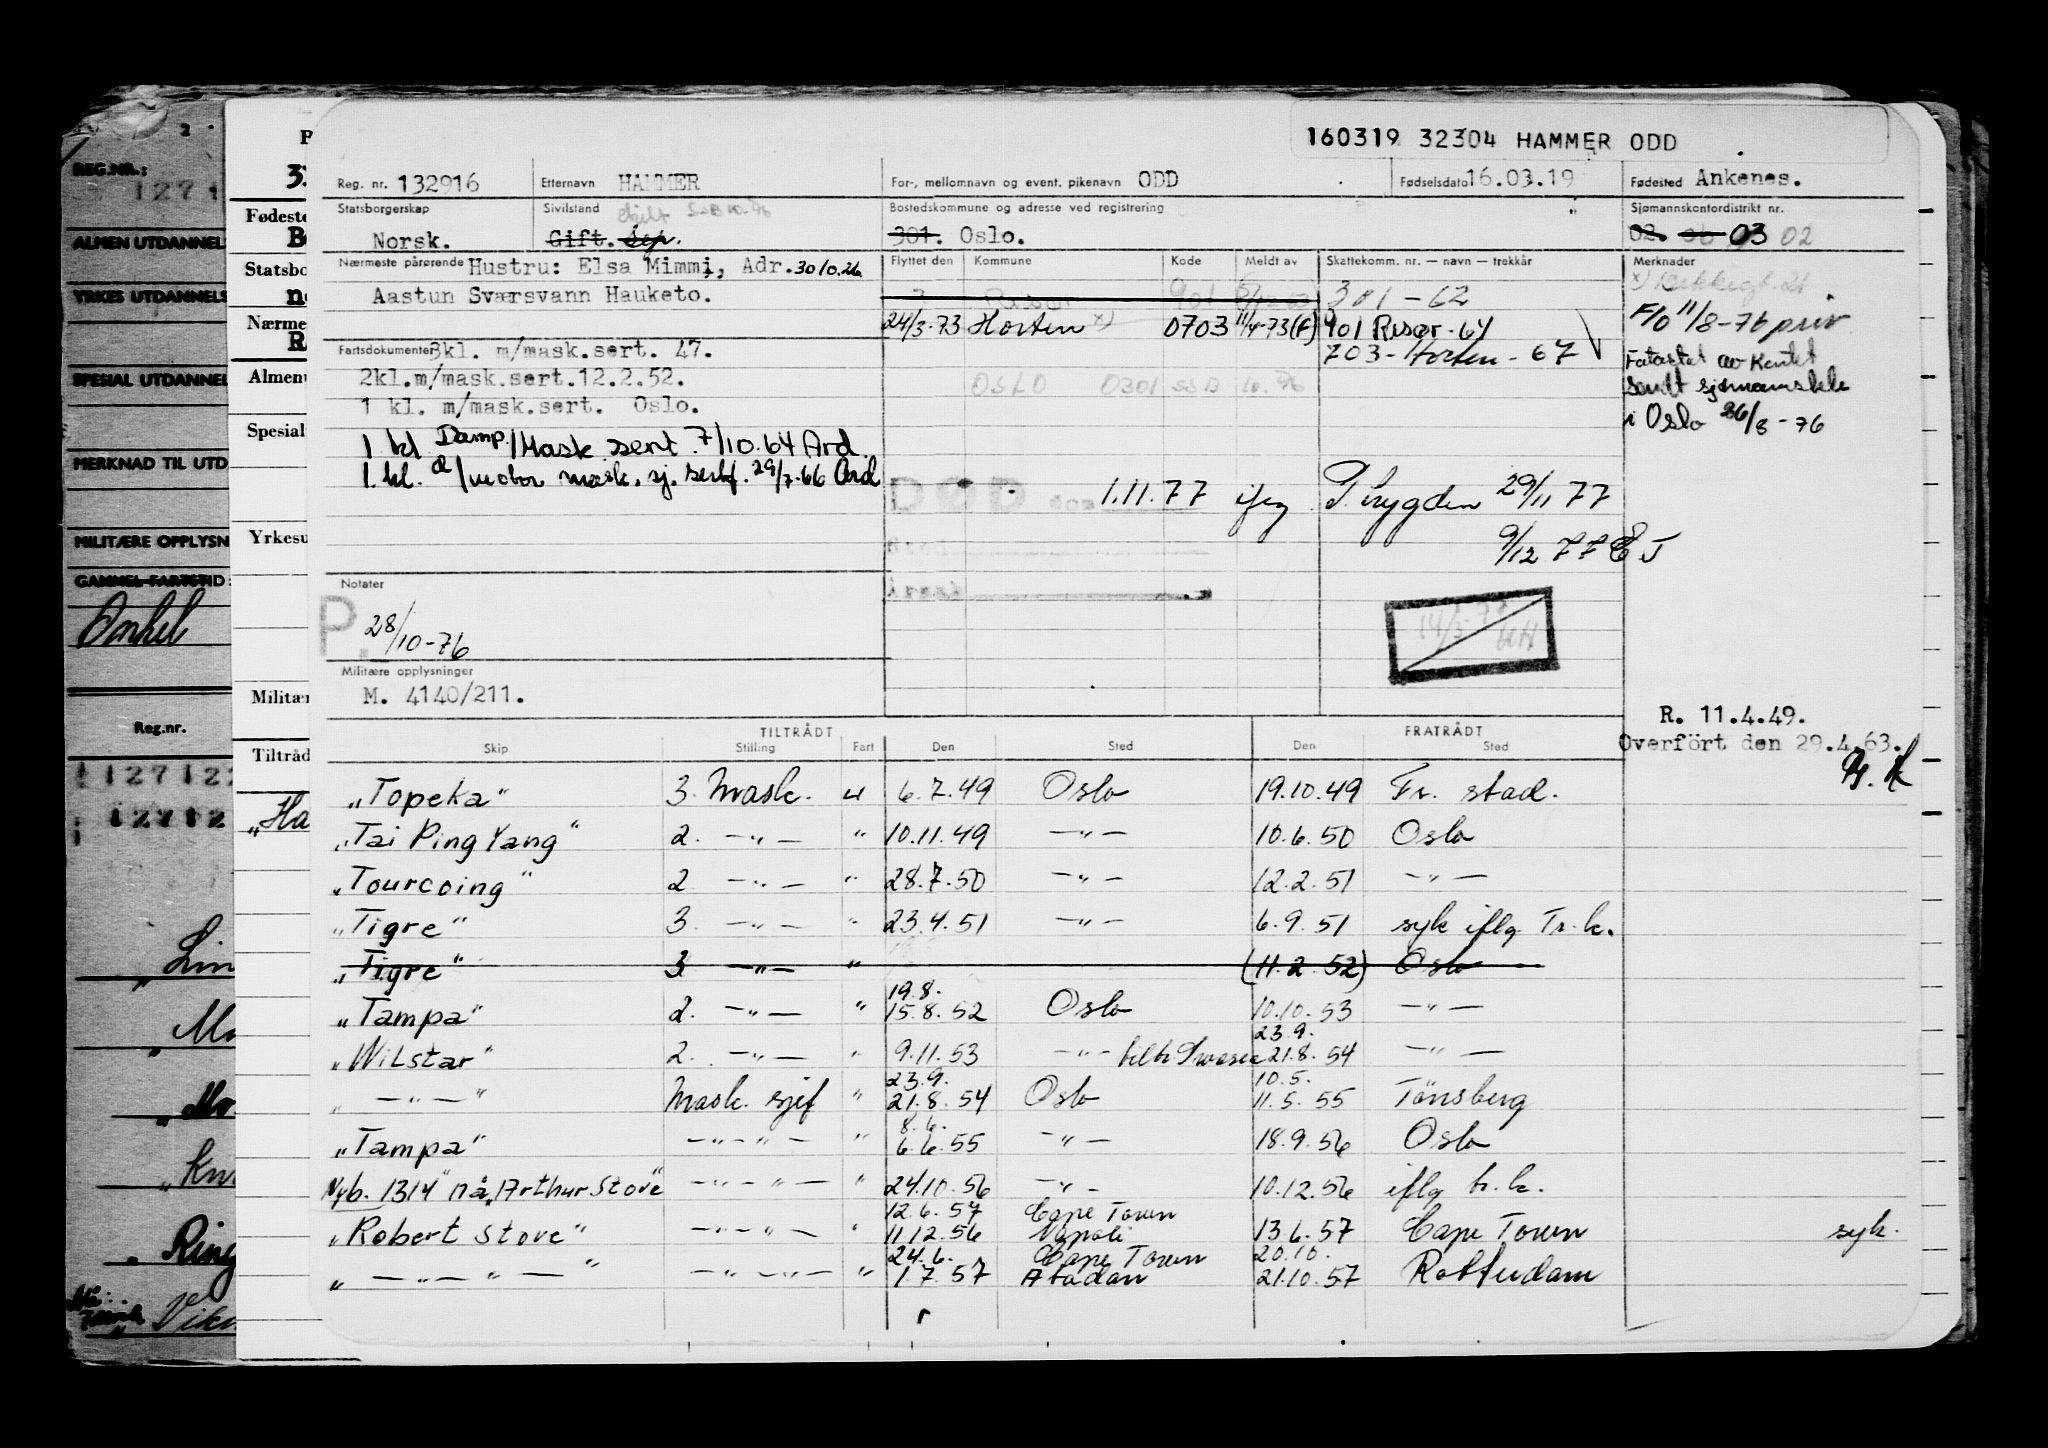 160319 32304 HAMMER ODD
Reg. nr. 132916 Etternavn HAMMER For-, mellomnavn og event. pikenavn ODD Fødselsdato 16.03.19 Fødested Ankenes.
Statsborgerskap Sivilstand Bostedskommune og adresse ved registrering Sjømannskontordistrikt nr.
Norsk. Gift. Sep. 301. Oslo. 02. 06 03 02
Nærmeste pårørende Hustru: Elsa Mimmi, Adr. 30/0.26 Flyttet den Kommune Kode Meldt av Skattekomm. nr. — navn — trekkår Merknader
Aastun Sværsvann Hauketo. 301 - 62
24/3-73 Horten x) 0703 11/4-73(F) 901 Risør - 64 F/0 11/8-76 priv
Fartsdokumenter 3kl. m/mask.sert. 47. 703 - Horten - 67
2kl.m/mask.sert.12.2.52. OSLO 0301 SSB 10. 76
1 kl. m/mask.sert. Oslo. i Oslo 26/8-76
1 kl Damp/Mask.sert. 7/10.64 Ard.
1. kl. /motor mask. sj. sertf. 29/7-66 Ard
DØD 1.11.77 29/11 77
9/12 77
Notater
P. 28/10-76
Militære opplysninger
M. 4140/211.
R. 11.4.49.
Overfört den 29.4.63.
TILTRÅDT FRATRÅDT
Skip Stilling Fart Den Sted Den Sted
"Topeka" 3. Mask. u 6.7.49 Oslo 19.10.49 Fr. stad.
"Tai Ping Yang" 2. —"— " 10.11.49 —"— 10.6.50 Oslo
"Tourcoing" 2 —"— " 28.7.50 —"— 12.2.51 —"—
"Tigre" 3. —"— " 23.4.51 —"— 6.9.51 syk iflg Tr.k.
"Tigre" 3. —"— " (11.2.52) Oslo
19.8.
"Tampa" 2. —"— " 15.8.52 Oslo 10.10.53 —"—
23.9.
"Wilstar" 2. —"— " 9.11.53 —"— 21.8.54 —"—
23.9. 10.5.
" —"— Mask. sjef " 21.8.54 Oslo 11.5.55 Tönsberg
8.6.
"Tampa" —"—"— " 6.6.55 —"— 18.9.56 Oslo
Nyb. 1314" nå "Arthur Stove" —"—"— " 24.10.56 —"— 10.12.56 iflg tr.k.
12.6.57 Cape Town
"Robert Stove" —"—"— " 11.12.56 Napoli 13.6.57 Cape Town syk.
24.6. Cape Town 20.10.
" —"—"— " —"—"— " 1.7.57 Abadan 21.10.57 Rotterdam
2
REG.NR.:
1271
ALMEN UTDANNEL
YRKES UTDANNELS
SPESIAL UTDANNEL
MERKNAD TIL UTD
MILITÆRE OPPLYSN
GAMMEL FARTSTID
Onkel
Reg.nr.
127122
12712
Fødeste
Statsbo
Nærme
Almenu
Spesial
Yrkesu
Militær
Tiltråd
"Ha
"Lin
"Ring